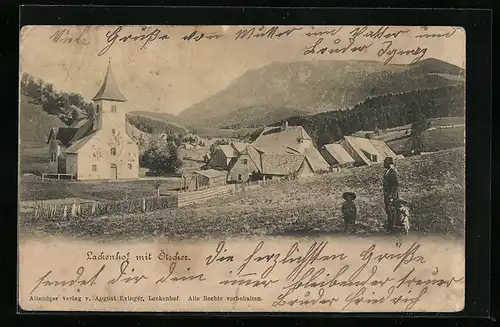 Viele Grüße von Mutter und Vater und
Bruder Ignaz
Lackenhof mit Ötscher.
Die herzlichsten Grüße
sendet Dir dein immer bleibender treuer
Bruder Friedrich
Alleiniger Verlag v. August Exinger, Lackenhof. Alle Rechte vorbehalten.